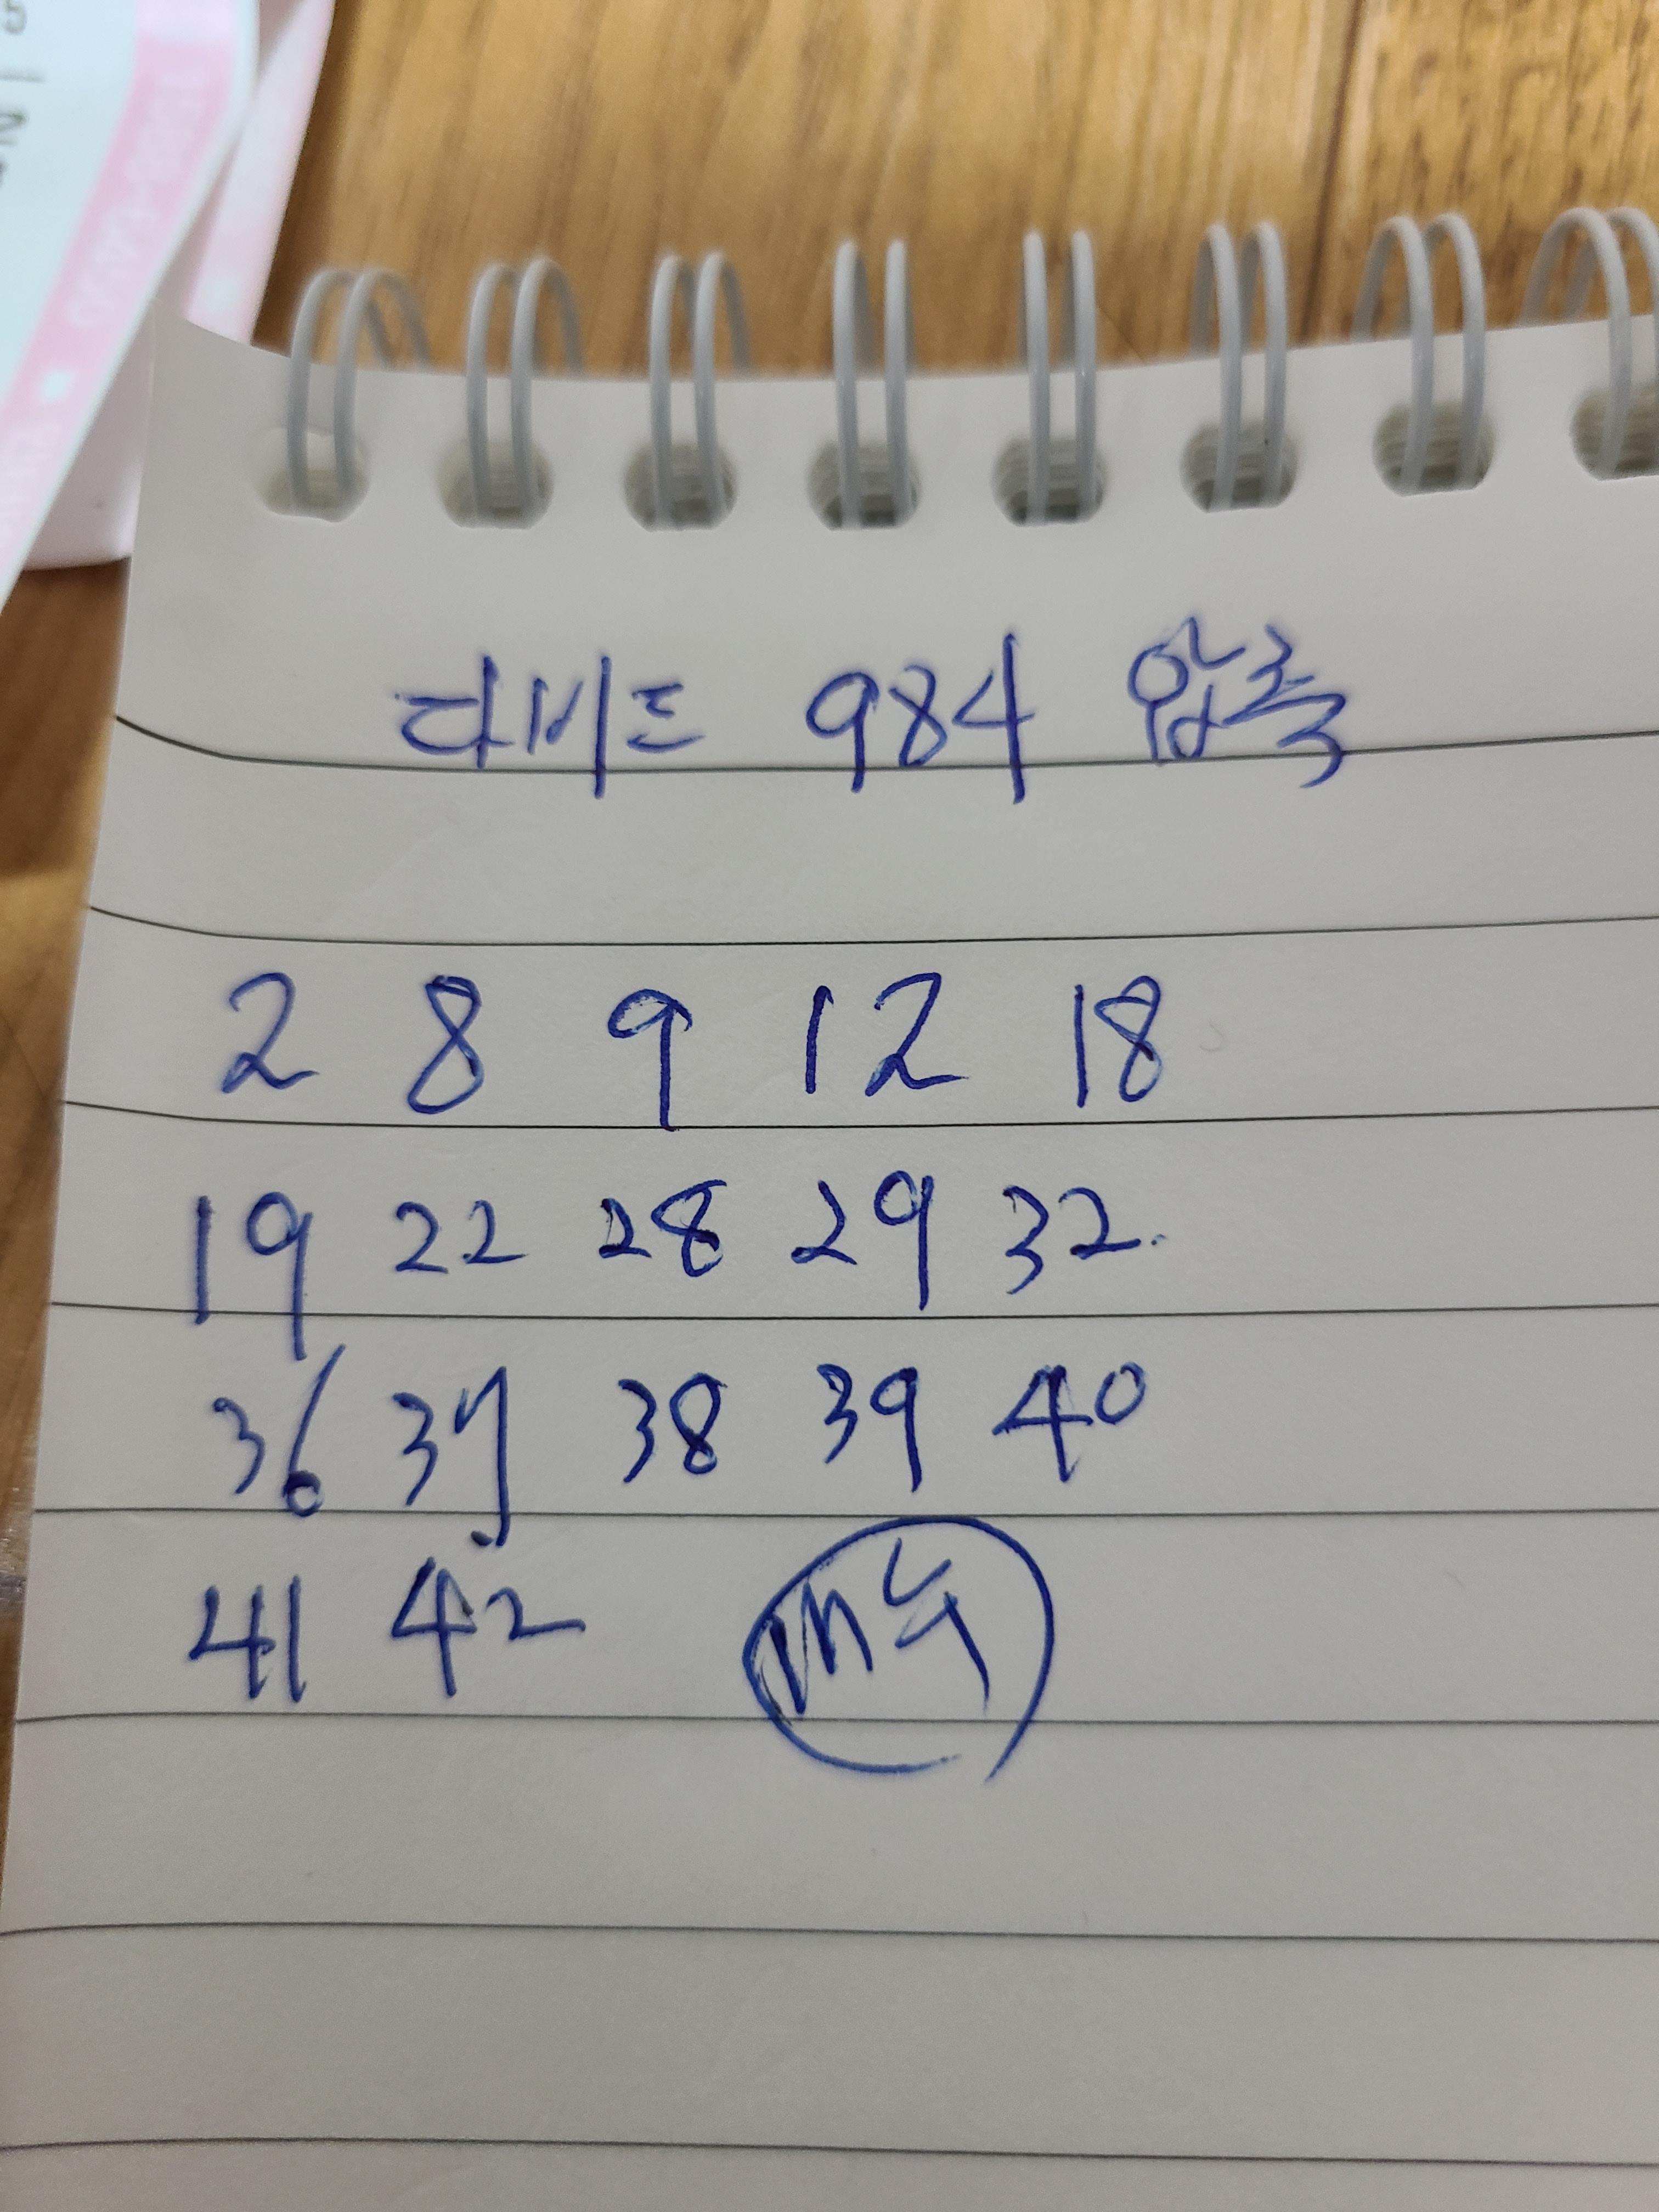 다비드 984 압축
2 8 9 12 18
19 22 28 29 32
36 37 38 39 40
41 42